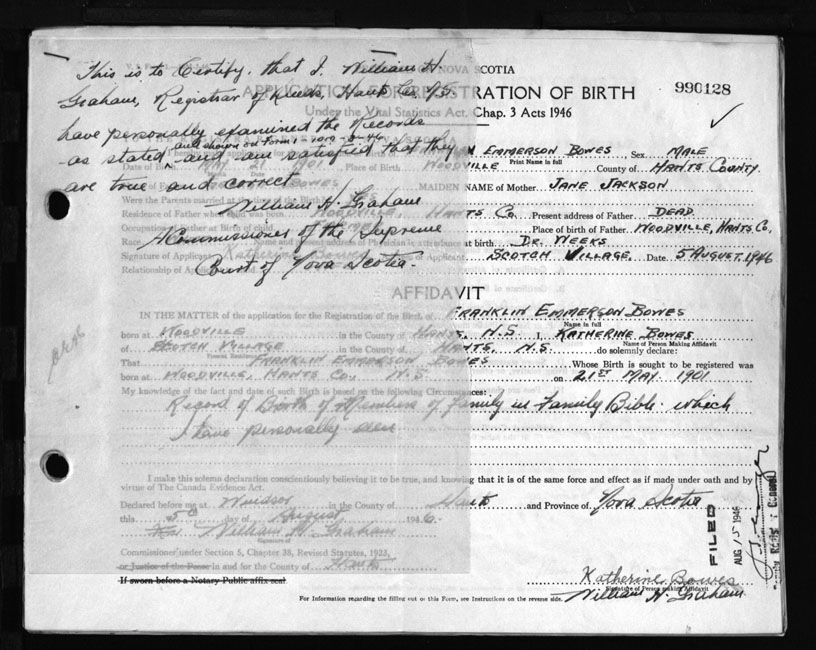 This is to Certify, that I, William H.
Graham, Registrar of Deeds, Hants Co. N.S.
have personally examined the Records
and shown on Form
as stated and am satisfied that they
are true and correct
William H. Graham
A Commissioner of the Supreme
Court of Nova Scotia.
NOVA SCOTIA
APPLICATION FOR REGISTRATION OF BIRTH
990128
Under the Vital Statistics Act, Chap. 3 Acts 1946
EMMERSON BOWES, Sex MALE
Print Name in full
Place of Birth WOODVILLE County of HANTS COUNTY
MAIDEN NAME of Mother JANE JACKSON
Were the Parents married at
Residence of Father when child was born WOODVILLE, HANTS CO. Present address of Father DEAD
Place of birth of Father WOODVILLE, HANTS CO.
at birth DR. WEEKS
Signature of Applicant Katherine Bowes SCOTCH VILLAGE Date 5 AUGUST, 1946
AFFIDAVIT
IN THE MATTER of the application for the Registration of the Birth of FRANKLIN EMMERSON BOWES
Name in full
born at WOODVILLE in the County of HANTS, N.S. I, KATHERINE BOWES
Name of Person Making Affidavit
of SCOTCH VILLAGE in the County of HANTS, N.S. do solemnly declare:
That FRANKLIN EMMERSON BOWES Whose Birth is sought to be registered was
born at WOODVILLE, HANTS CO., N.S on 21ST MAY 1901
My knowledge of the fact and date of such Birth is based on the following Circumstances:
Record of Birth of Members of Family in Family Bible which
I have personally seen
I make this solemn declaration conscientiously believing it to be true, and knowing that it is of the same force and effect as if made under oath and by
virtue of The Canada Evidence Act.
Declared before me at Windsor in the County of Hants and Province of Nova Scotia
this 5th day of August 1946.
William H. Graham
Signature of
Commissioner under Section 5, Chapter 38, Revised Statutes, 1923,
or Justice of the Peace in and for the County of Hants
If sworn before a Notary Public affix seal
Katherine Bowes
Signature of Person making Affidavit
William H. Graham
For Information regarding the filling out of this Form, see Instructions on the reverse side.
FILED
AUG 15 1946